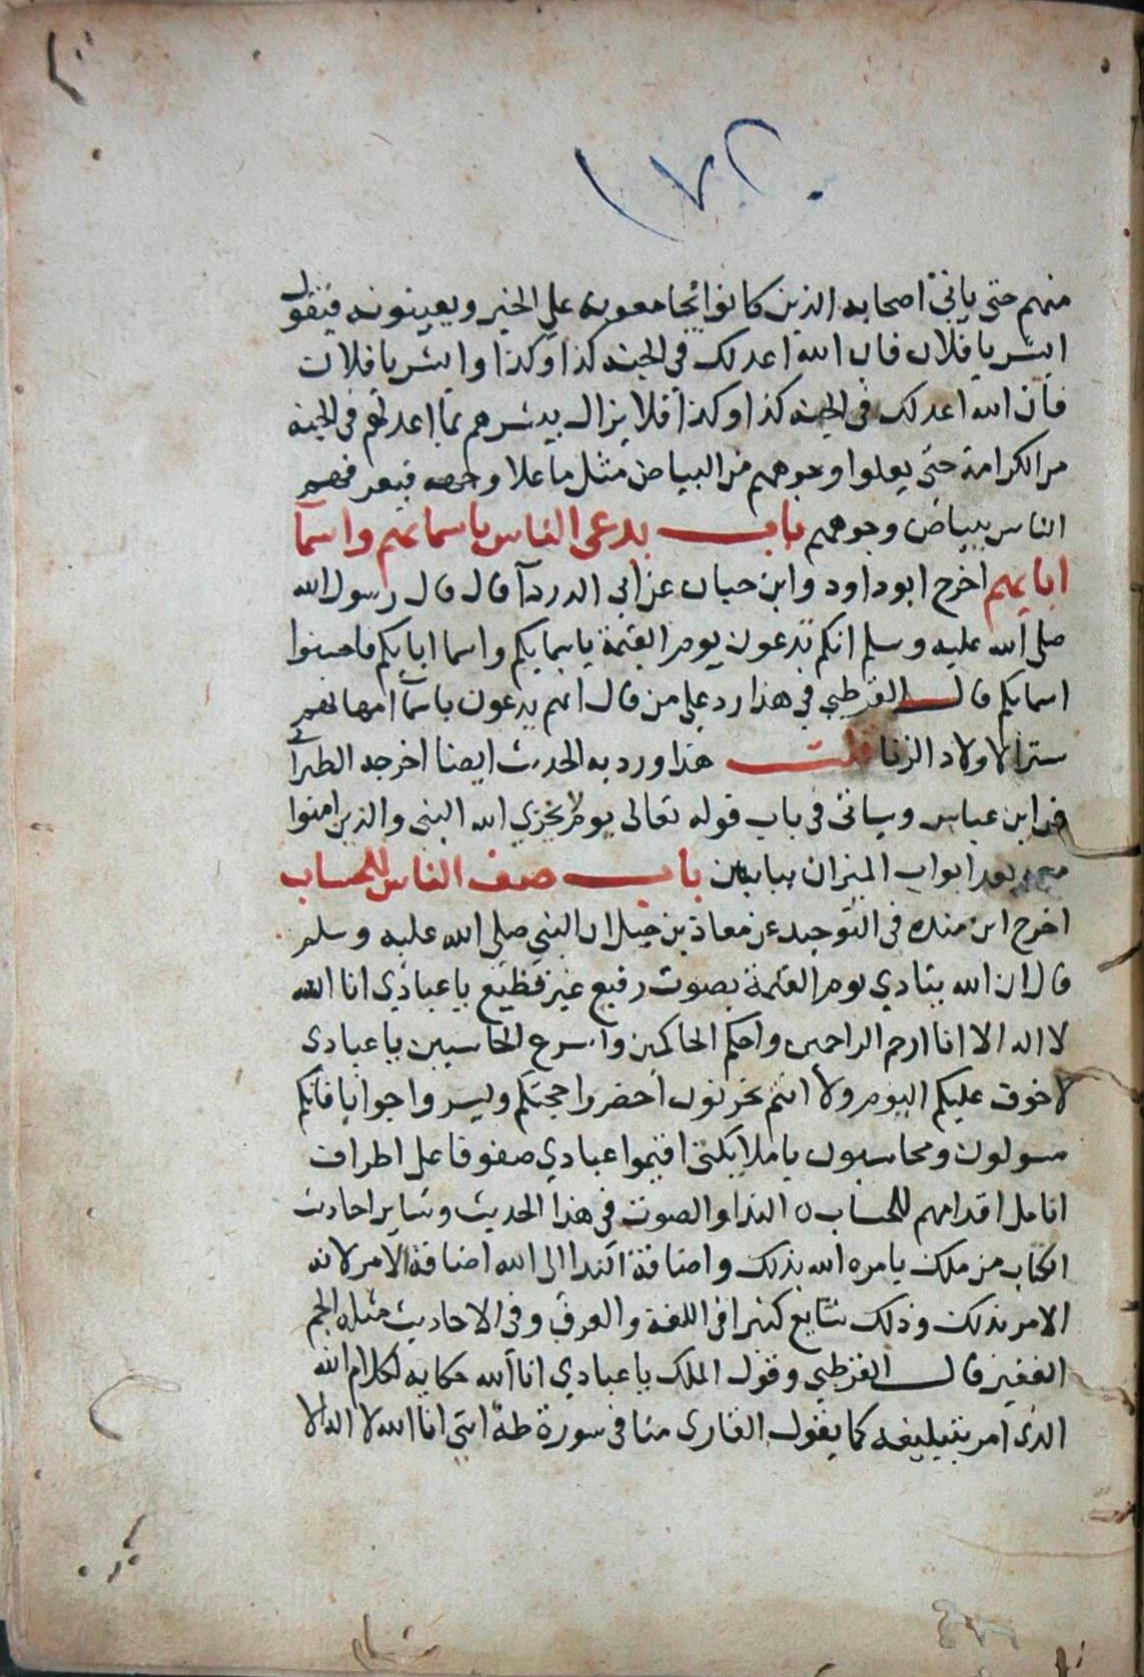 ١٧٢٠
منهم حتى ياتى اصحابه الذين كانوا يجامعونه على الخير ويعينونه فيقول
ابشر يا فلان فان الله اعد لك في الجنه كذا وكذا وابشر يا فلان
فان الله اعد لك في الجنه كذا وكذا فلا يزال يبشرهم بما اعد لهم في الجنه
من الكرامة حتى يعلوا وجوههم من البياض مثل ما علا وجهه فيعرفهم
الناس ببياض وجوههم باب يدعى الناس باسمائهم واسما
ابايهم اخرج ابو داود وابن حبان عن ابي الدردآ قال قال رسول الله
صلى الله عليه وسلم انكم تدعون يوم القيمة باسمايكم واسما ابايكم فاحسنوا
اسمايكم قال القرطبي في هذا رد على من قال انهم يدعون باسمآ امهاتهم
سترا لاولاد الزنا قلت هذا ورد به الحديث ايضا اخرجه الطبرا
عن ابن عباس وسياتى في باب قوله تعالى يوم لا يخزي الله النبي والذين امنوا
معه بعد ابواب الميزان ببابين باب صف الناس للحساب
اخرج ابن منده في التوحيد عن معاذ بن جبل ان النبي صلى الله عليه وسلم
قال ان الله ينادي يوم القيمة بصوت رفيع غير فظيع يا عبادي انا الله
لا اله الا انا ارحم الراحمين واحكم الحاكمين واسرع الحاسبين يا عبادى
لا خوف عليكم اليوم ولا انتم تحزنون احضروا حجتكم ويسروا جوابا فانكم
مسولون ومحاسبون يا ملايكتى اقيموا عبادي صفوفا على اطراف
انامل اقدامهم للحساب ٥ الندا والصوت في هذا الحديث وساير احاديث
الكتاب من ملك يامره الله بذلك واضافة الندا الى الله اضافة الامر لانه
الامر بذلك وذلك شايع كثيرا في اللغة والعرف وفي الاحاديث مثله الجم
الغفير قال القرطبي وقول الملك يا عبادي انا الله حكاية لكلام الله
الذى امر بتبليغه كما يقول القارى منا في سورة طه انني انا الله لا اله الا